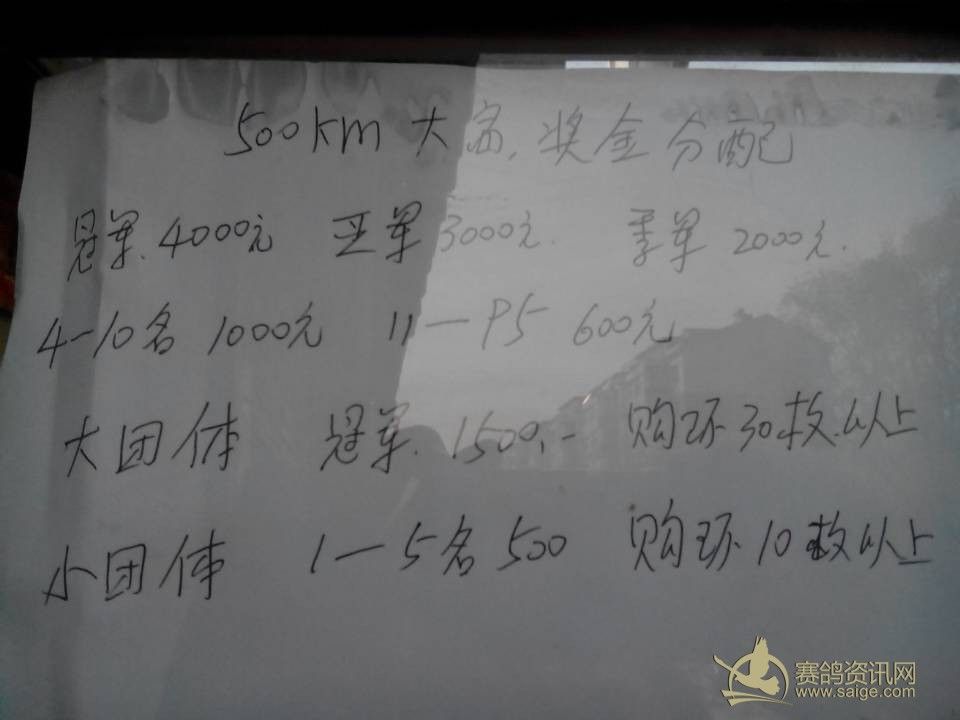 500km 大富,奖金分配
冠军.4000元 亚军 3000元. 季军 2000元.
4-10名 1000元 11—95 600元
大团体 冠军.1500.- 购环30枚以上
小团体 1—5名 500 购环10枚以上
赛鸽资讯网
www.saige.com